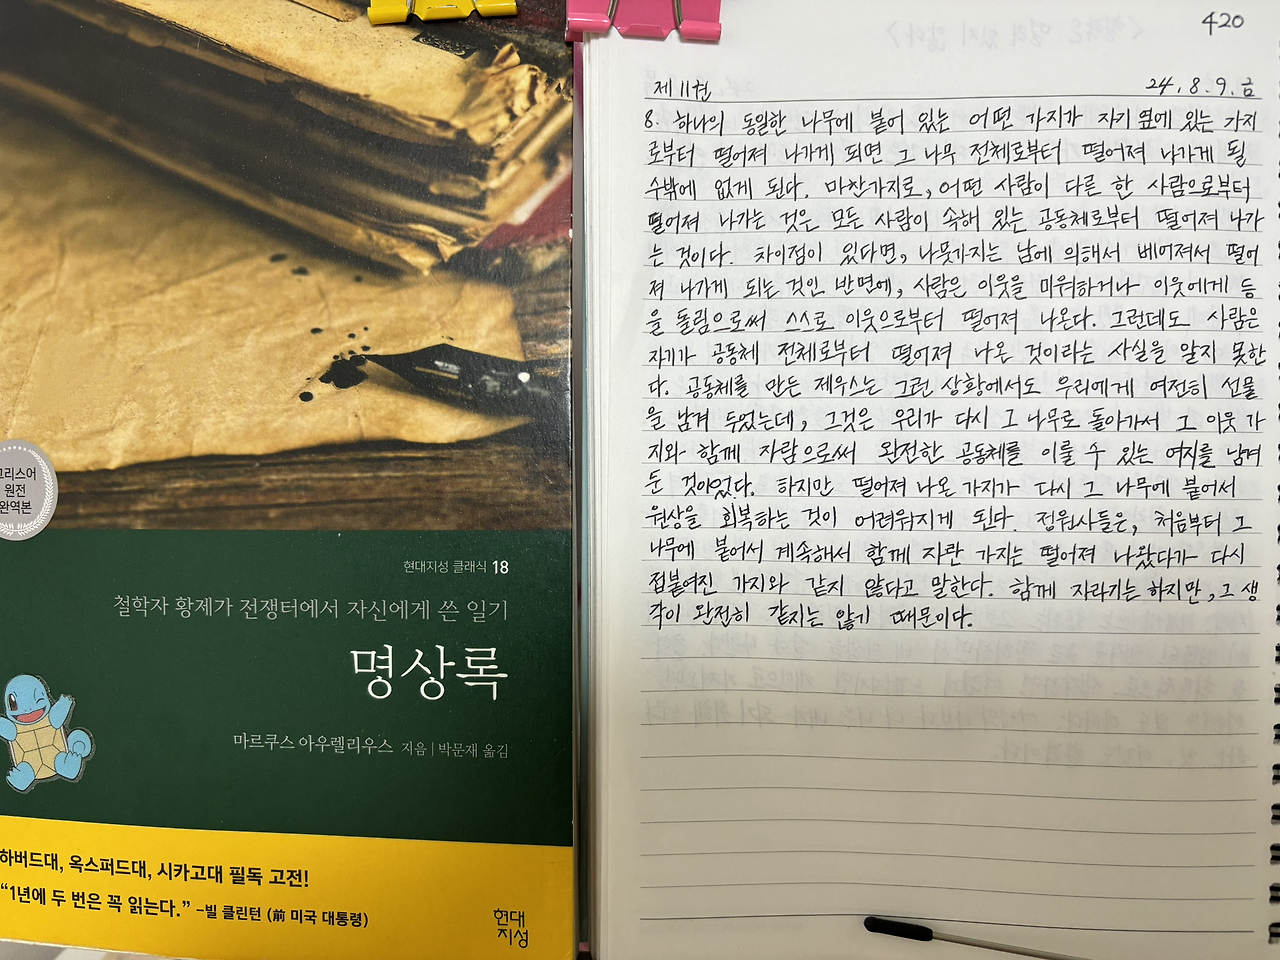 그리스어
원전
완역본
현대지성 클래식 18
철학자 황제가 전쟁터에서 자신에게 쓴 일기
명상록
마르쿠스 아우렐리우스 지음 | 박문재 옮김
하버드대, 옥스퍼드대, 시카고대 필독 고전!
“1년에 두 번은 꼭 읽는다.” –빌 클린턴 (前 미국 대통령)
현대
지성
420
제 11권 24. 8. 9. 금
8. 하나의 동일한 나무에 붙어 있는 어떤 가지가 자기 옆에 있는 가지
로부터 떨어져 나가게 되면 그 나무 전체로부터 떨어져 나가게 될
수밖에 없게 된다. 마찬가지로, 어떤 사람이 다른 한 사람으로부터
떨어져 나가는 것은 모든 사람이 속해 있는 공동체로부터 떨어져 나가
는 것이다. 차이점이 있다면, 나뭇가지는 남에 의해서 베어져서 떨어
져 나가게 되는 것인 반면에, 사람은 이웃을 미워하거나 이웃에게 등
을 돌림으로써 스스로 이웃으로부터 떨어져 나온다. 그런데도 사람은
자기가 공동체 전체로부터 떨어져 나온 것이라는 사실을 알지 못한
다. 공동체를 만든 제우스는 그런 상황에서도 우리에게 여전히 선물
을 남겨 두었는데, 그것은 우리가 다시 그 나무로 돌아가서 그 이웃 가
지와 함께 자람으로써 완전한 공동체를 이룰 수 있는 여지를 남겨
둔 것이었다. 하지만 떨어져 나온 가지가 다시 그 나무에 붙어서
원상을 회복하는 것이 어려워지게 된다. 정원사들은, 처음부터 그
나무에 붙어서 계속해서 함께 자란 가지는 떨어져 나왔다가 다시
접붙여진 가지와 같지 않다고 말한다. 함께 자라기는 하지만, 그 생
각이 완전히 같지는 않기 때문이다.